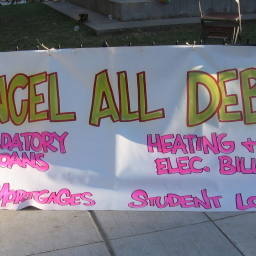 NCEL ALL DEB
DATORY HEATING +
OANS ELEC. BILL
MORTGAGES STUDENT LO